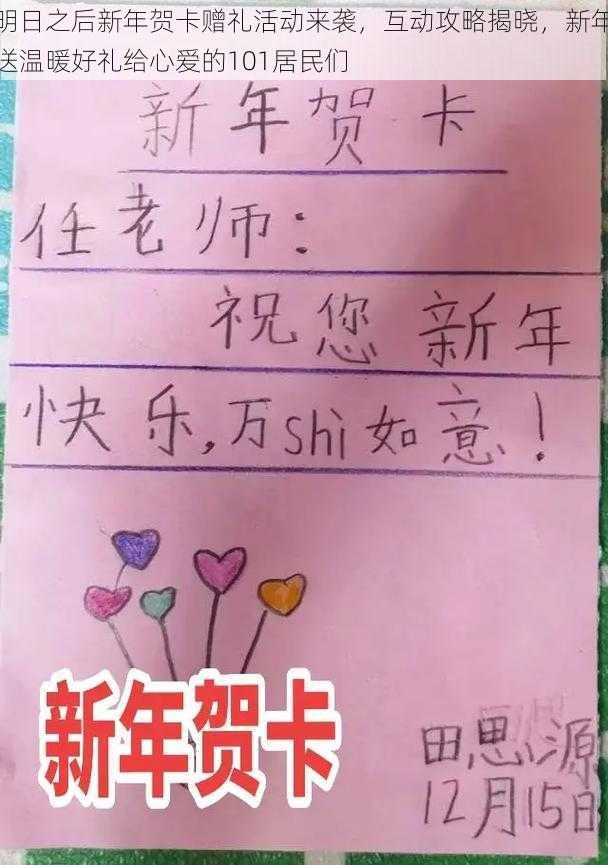 明日之后新年贺卡赠礼活动来袭，互动攻略揭晓，新年
送温暖好礼给心爱的101居民们
新年贺卡
任老师：
祝您新年
快乐,万shì如意！
新年贺卡
田思源
12月15日